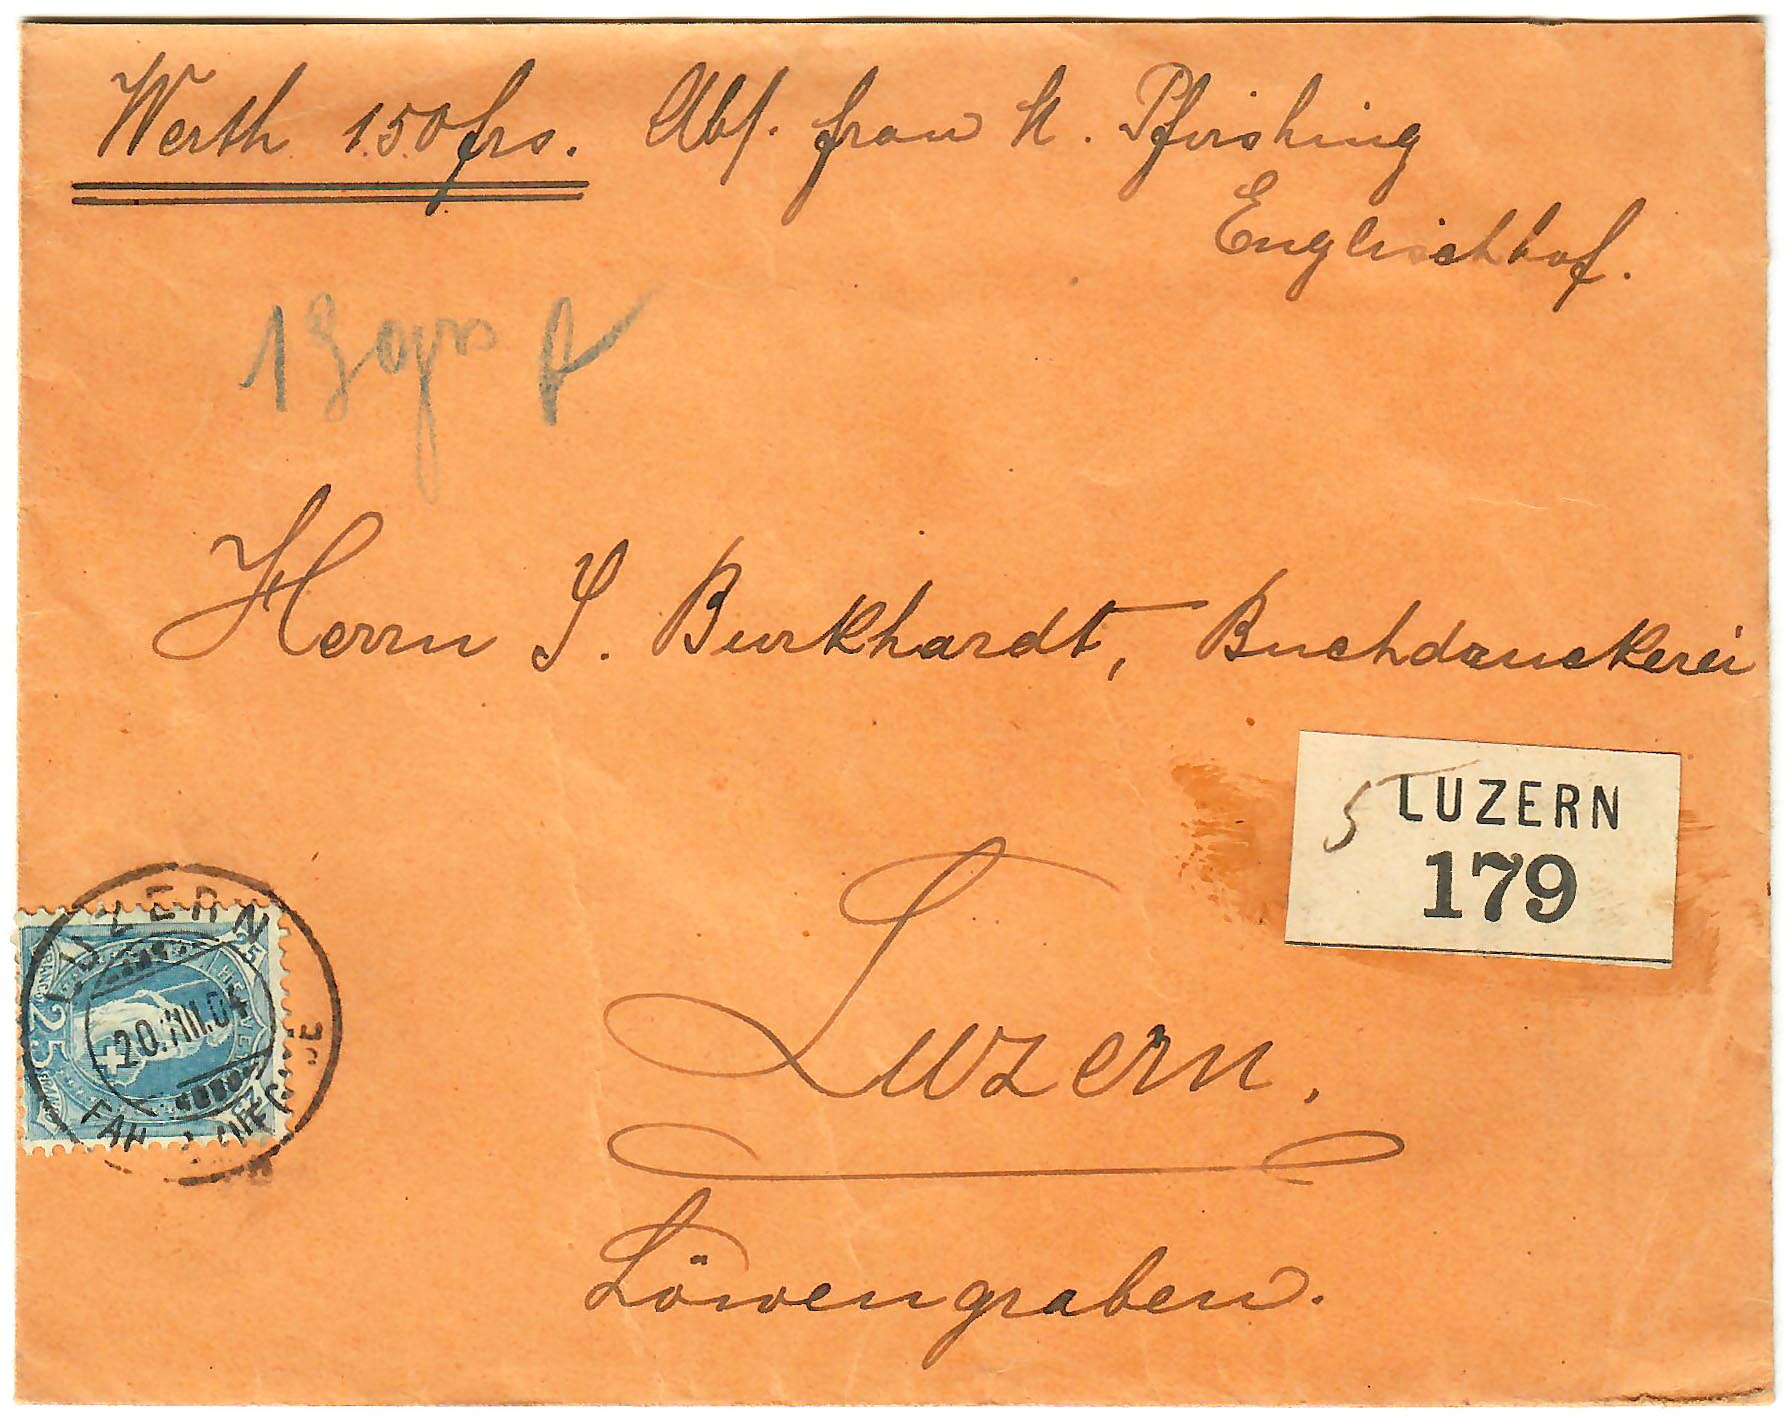 Werth 150 frs. Abs. frau A. Pfirshing
Englischhof.
13 grs
Herrn J. Burkhardt, Buchdruckerei
5 LUZERN
179
Luzern.
Löwengraben.
LUZERN
25
HELVETIA
20.VIII.04
25